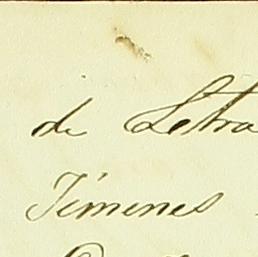 de Letra
Jimenes